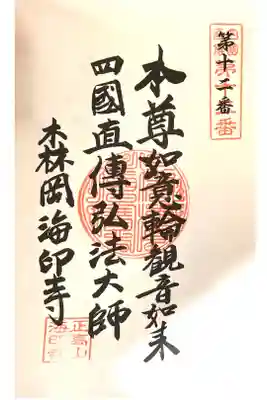 第十二番
本尊如意輪観音如来
四國直傳弘法大師
木林岡海印寺
正嘉山
海印寺